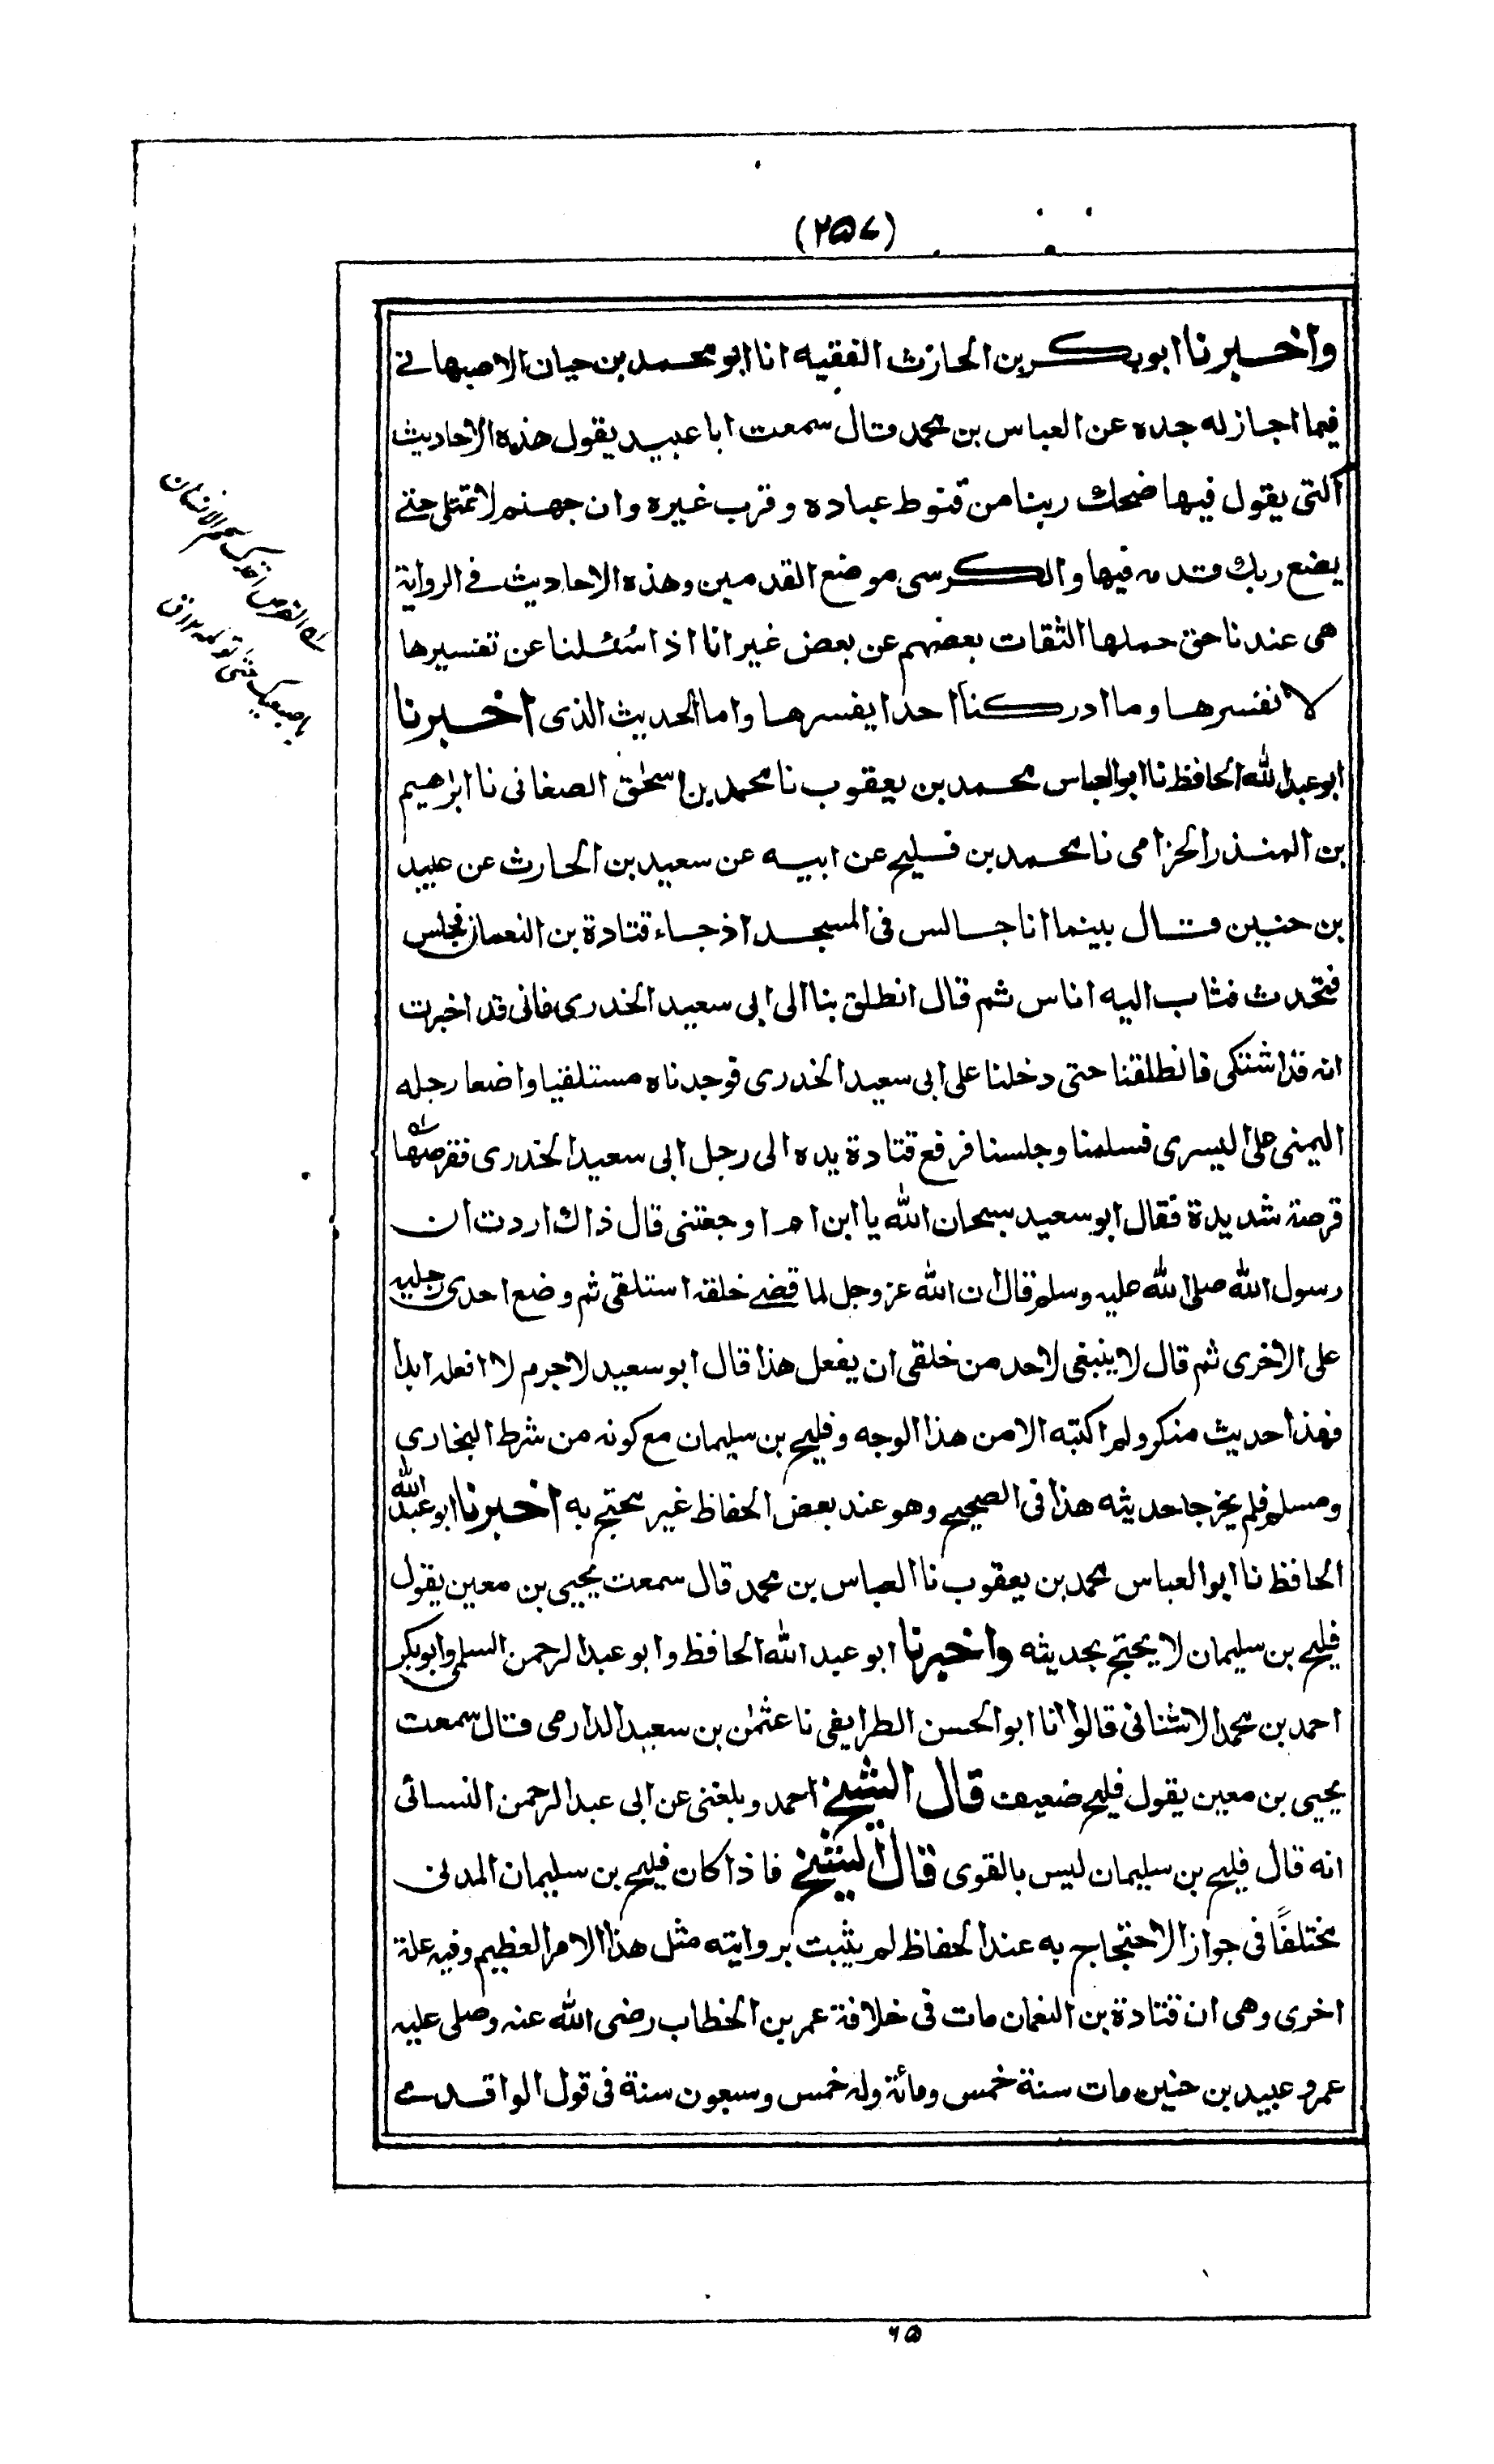 (۲۵۷)
واخبرنا ابوبكر بن الحازث الفقيه انا ابو محمد بن حيان الاصبهاني
فيما اجاز له جده عن العباس بن محمد قال سمعت ابا عبيد يقول هذه الاحاديث
التى يقول فيها ضحك ربنا من قنوط عباده وقرب غيره وان جهنم لا تمتلى حتى
يضع ربك قدمه فيها والكرسى موضع القدمين وهذه الاحاديث فى الرواية
هى عندنا حق حملها الثقات بعضهم عن بعض غير انا اذا سُئلنا عن تفسيرها
لا نفسرها وما ادركنا احدا يفسرها واما الحديث الذى اخبرنا
ابو عبد الله الحافظ نا ابو العباس محمد بن يعقوب نا محمد بن اسحٰق الصغانى نا ابرٰهيم
بن المنذر الحزامى نا محمد بن فليح عن ابيه عن سعيد بن الحارث عن عبيد
بن حنين قال بينما انا جالس فى المسجد اذ جاء قتادة بن النعمان فجلس
فتحدث فثاب اليه اناس ثم قال انطلق بنا الى ابى سعيد الخدرى فانى قد اخبرت
انه قد اشتكى فانطلقنا حتى دخلنا على ابى سعيد الخدرى فوجدناه مستلقيا واضعا رجله
اليمنى على اليسرى فسلمنا وجلسنا فرفع قتادة يده الى رجل ابى سعيد الخدرى فقرصها
قرصة شديدة فقال ابو سعيد سبحان الله يا ابن ام اوجعتنى قال ذاك اردت ان
رسول الله صلى الله عليه وسلم قال ان الله عز وجل لما قضى خلقه استلقى ثم وضع احدى رجليه
على الاخرى ثم قال لا ينبغى لاحد من خلقى ان يفعل هذا قال ابو سعيد لا جرم لا افعله ابدا
فهذا حديث منكر ولم اكتبه الا من هذا الوجه وفليح بن سليمان مع كونه من شرط البخارى
ومسلم فلم يخرجا حديثه هذا فى الصحيح وهو عند بعض الحفاظ غير محتج به اخبرنا ابو عبد الله
الحافظ نا ابو العباس محمد بن يعقوب نا العباس بن محمد قال سمعت يحيى بن معين يقول
فليح بن سليمان لا يحتج بحديثه واخبرنا ابو عبد الله الحافظ وابو عبد الرحمن السلمى وابوبكر
احمد بن محمد الاشنانى قالوا انا ابو الحسن الطرايفى نا عثمٰن بن سعيد الدارمى قال سمعت
يحيى بن معين يقول فليح ضعيف قال الشيخ احمد وبلغنى عن ابى عبد الرحمن النسائى
انه قال فليح بن سليمان ليس بالقوى قال الشيخ فاذا كان فليح بن سليمان المدنى
مختلفًا فى جواز الاحتجاج به عند الحفاظ لم يثبت بروايته مثل هذا الامر العظيم وفيه علة
اخرى وهى ان قتادة بن النعمان مات فى خلافة عمر بن الخطاب رضى الله عنه وصلى عليه
عمر وعبيد بن حنين مات سنة خمس ومائة وله خمس وسبعون سنة فى قول الواقدى
له القرص اخذك لحم الانسان
باصبعيك حتى تولمه
۶۵